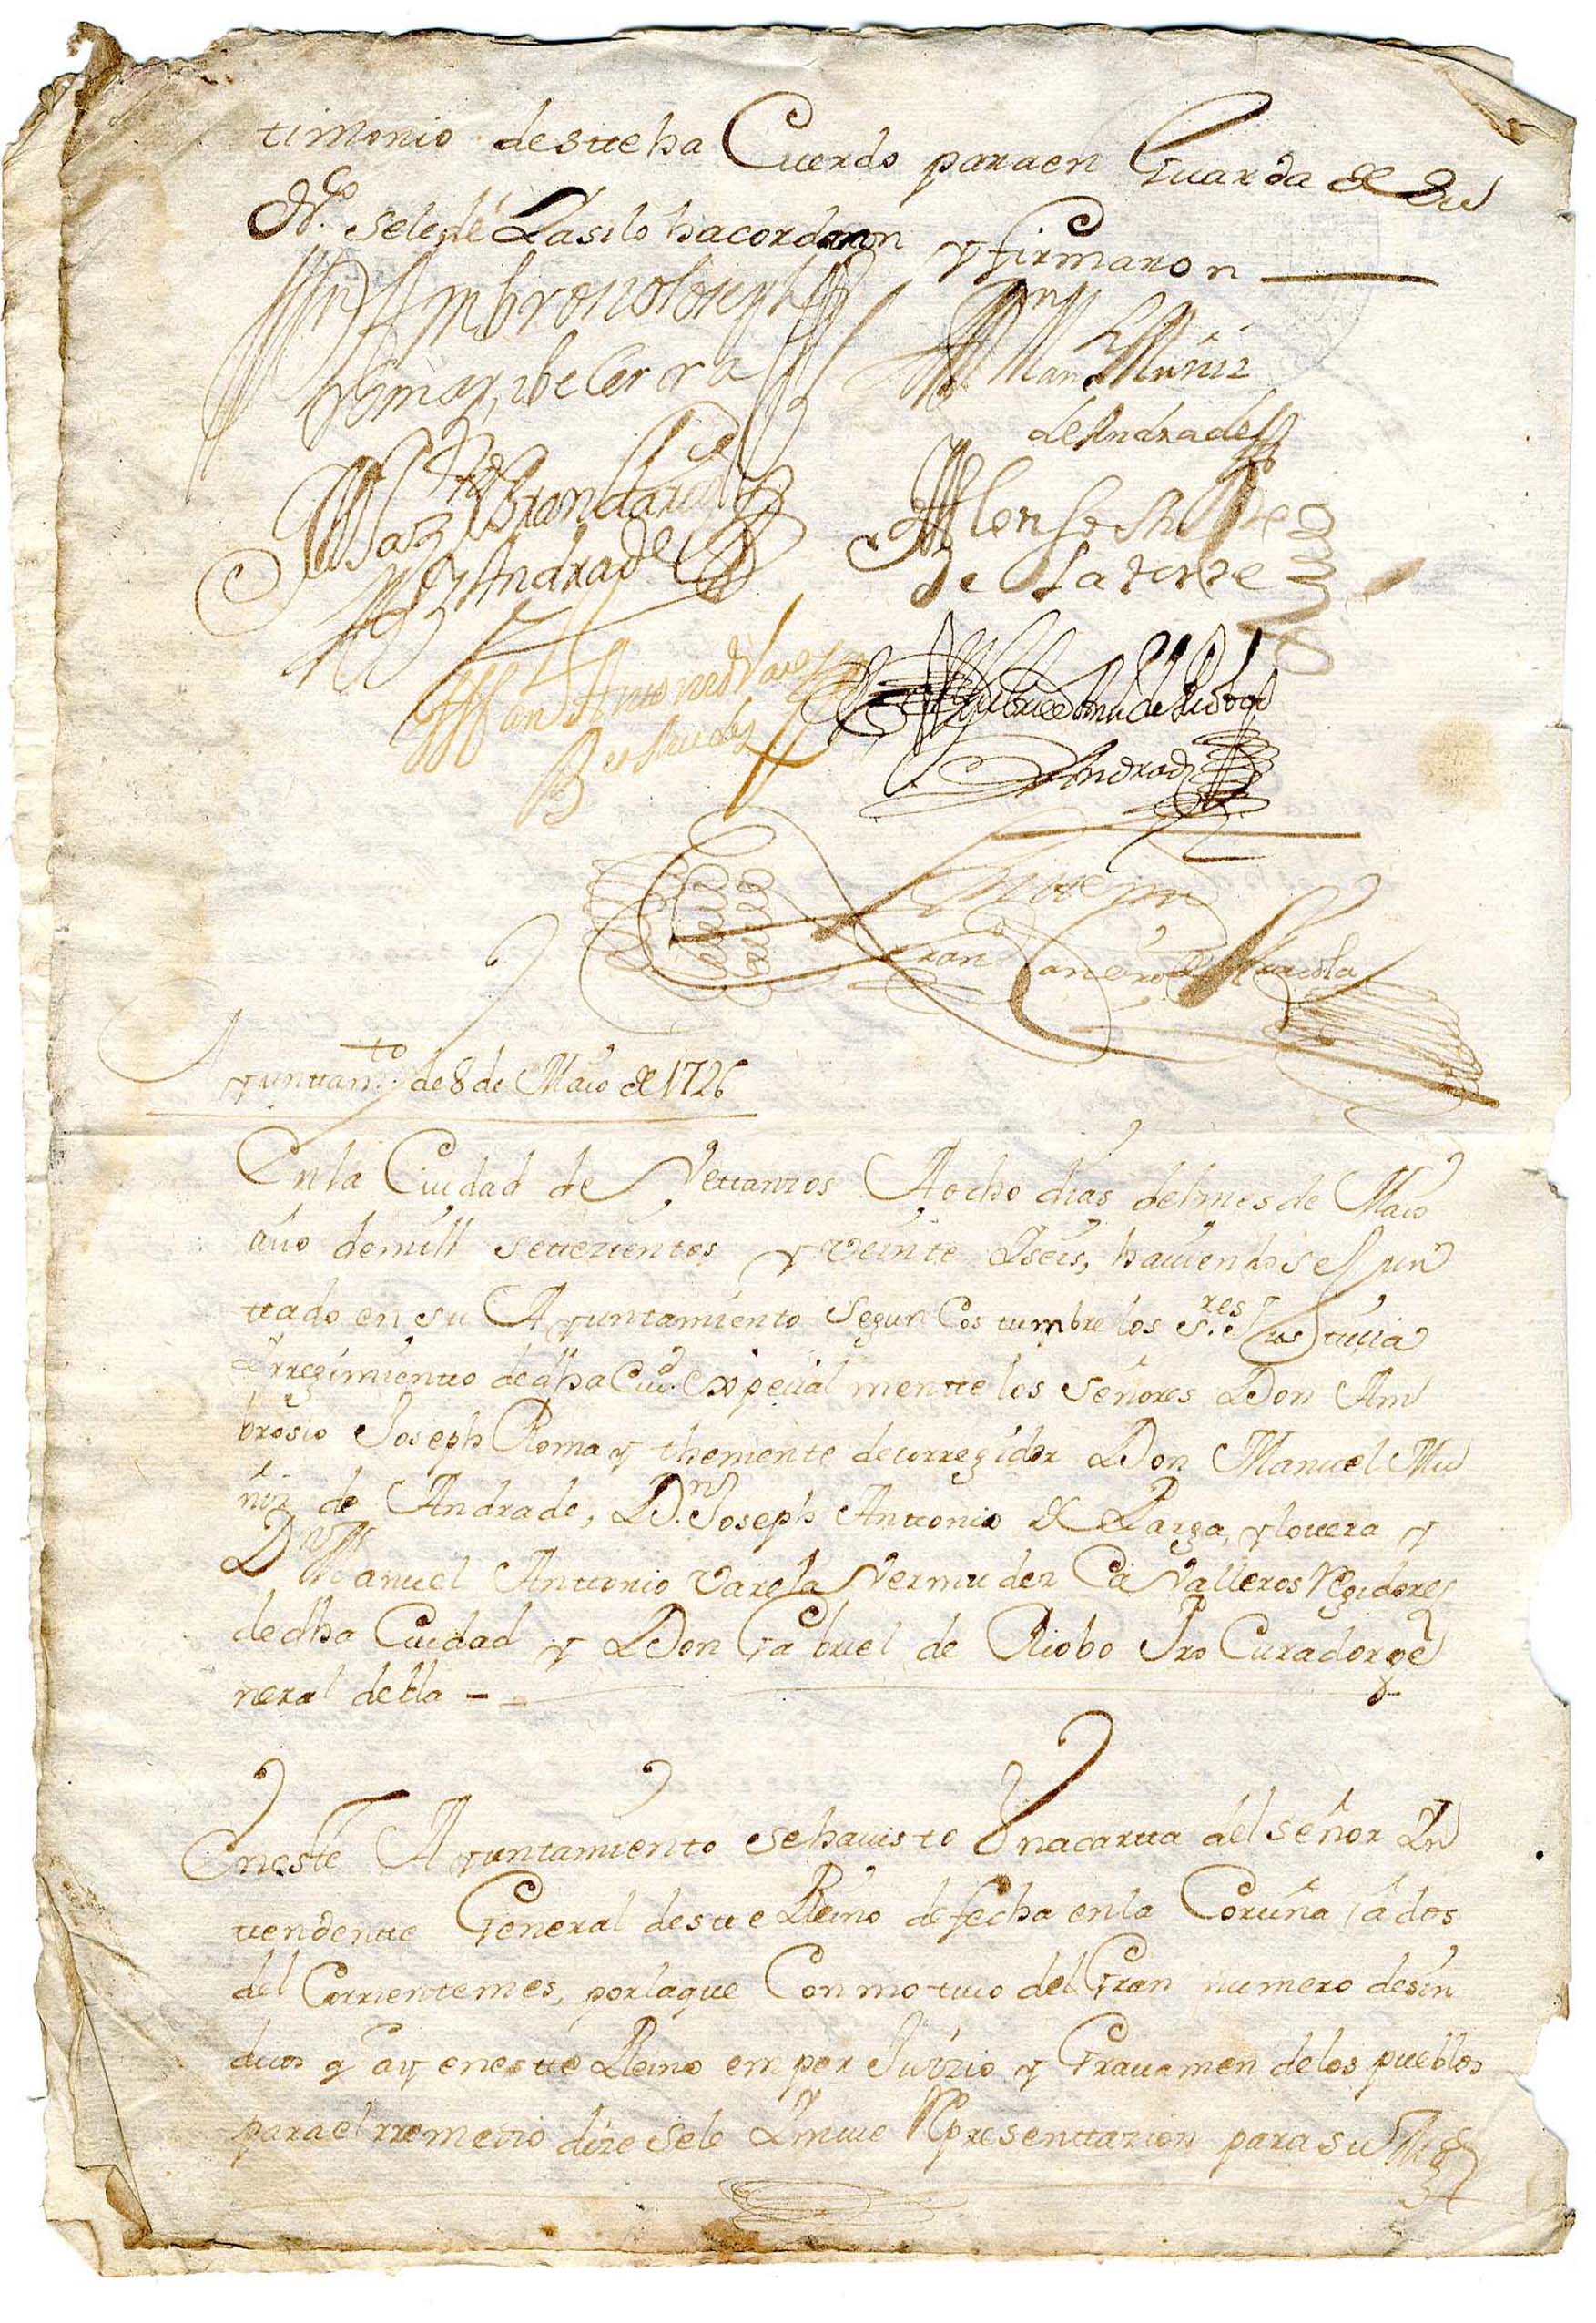 timonio desteha Cuerdo paraen Guarda de Su
dro. seledé Y asilo hacordaron y firmaron
Dn Ambrosio Joseph
Romay ibeCerra
Dn Man.l Muñiz
de Andrade
Balz.r de Brandariz
y Andrade
Alonso
de la torre
Man.l Antonio Varela
Bermudez
Gabriel Ant.o de Riobo
Andrade
Antte my
Fran.co
Ayunttam.to de 8 de Maio de 1726
En la Ciudad de Vettanzos A ocho dias delmes de Maio
año demill settezientos y veinte Yseis, haviendose Jun
ttado en su Ayuntamiento Segun Costumbre los S.res Justtizia
Y rregimientto dedha Ciu.d espezial mentte los señores Don Am
brosio Joseph Romay theniente decorregidor Don Manuel Mu
ñiz de Andrade, D.n Joseph Anttonio de Parga, ylovera y
Dn Manuel Anttonio Varela Vermudez Cavalleros Rexidores
dedha Ciudad y Don Gabriel de Riobo ProCurador ge
neral della -
Eneste Ayuntamiento sehavisto Una cartta del señor Yn
tendentte General destte Reino de fecha enla Coruña, a dos
del Corrientemes, porlaque Con motivo del Gran numero desin
dicos q ay enestte Reino en perJuizio y Gravamen delos pueblos
parael rremedio dize sele Ymvie Representtazion para su Mag.d